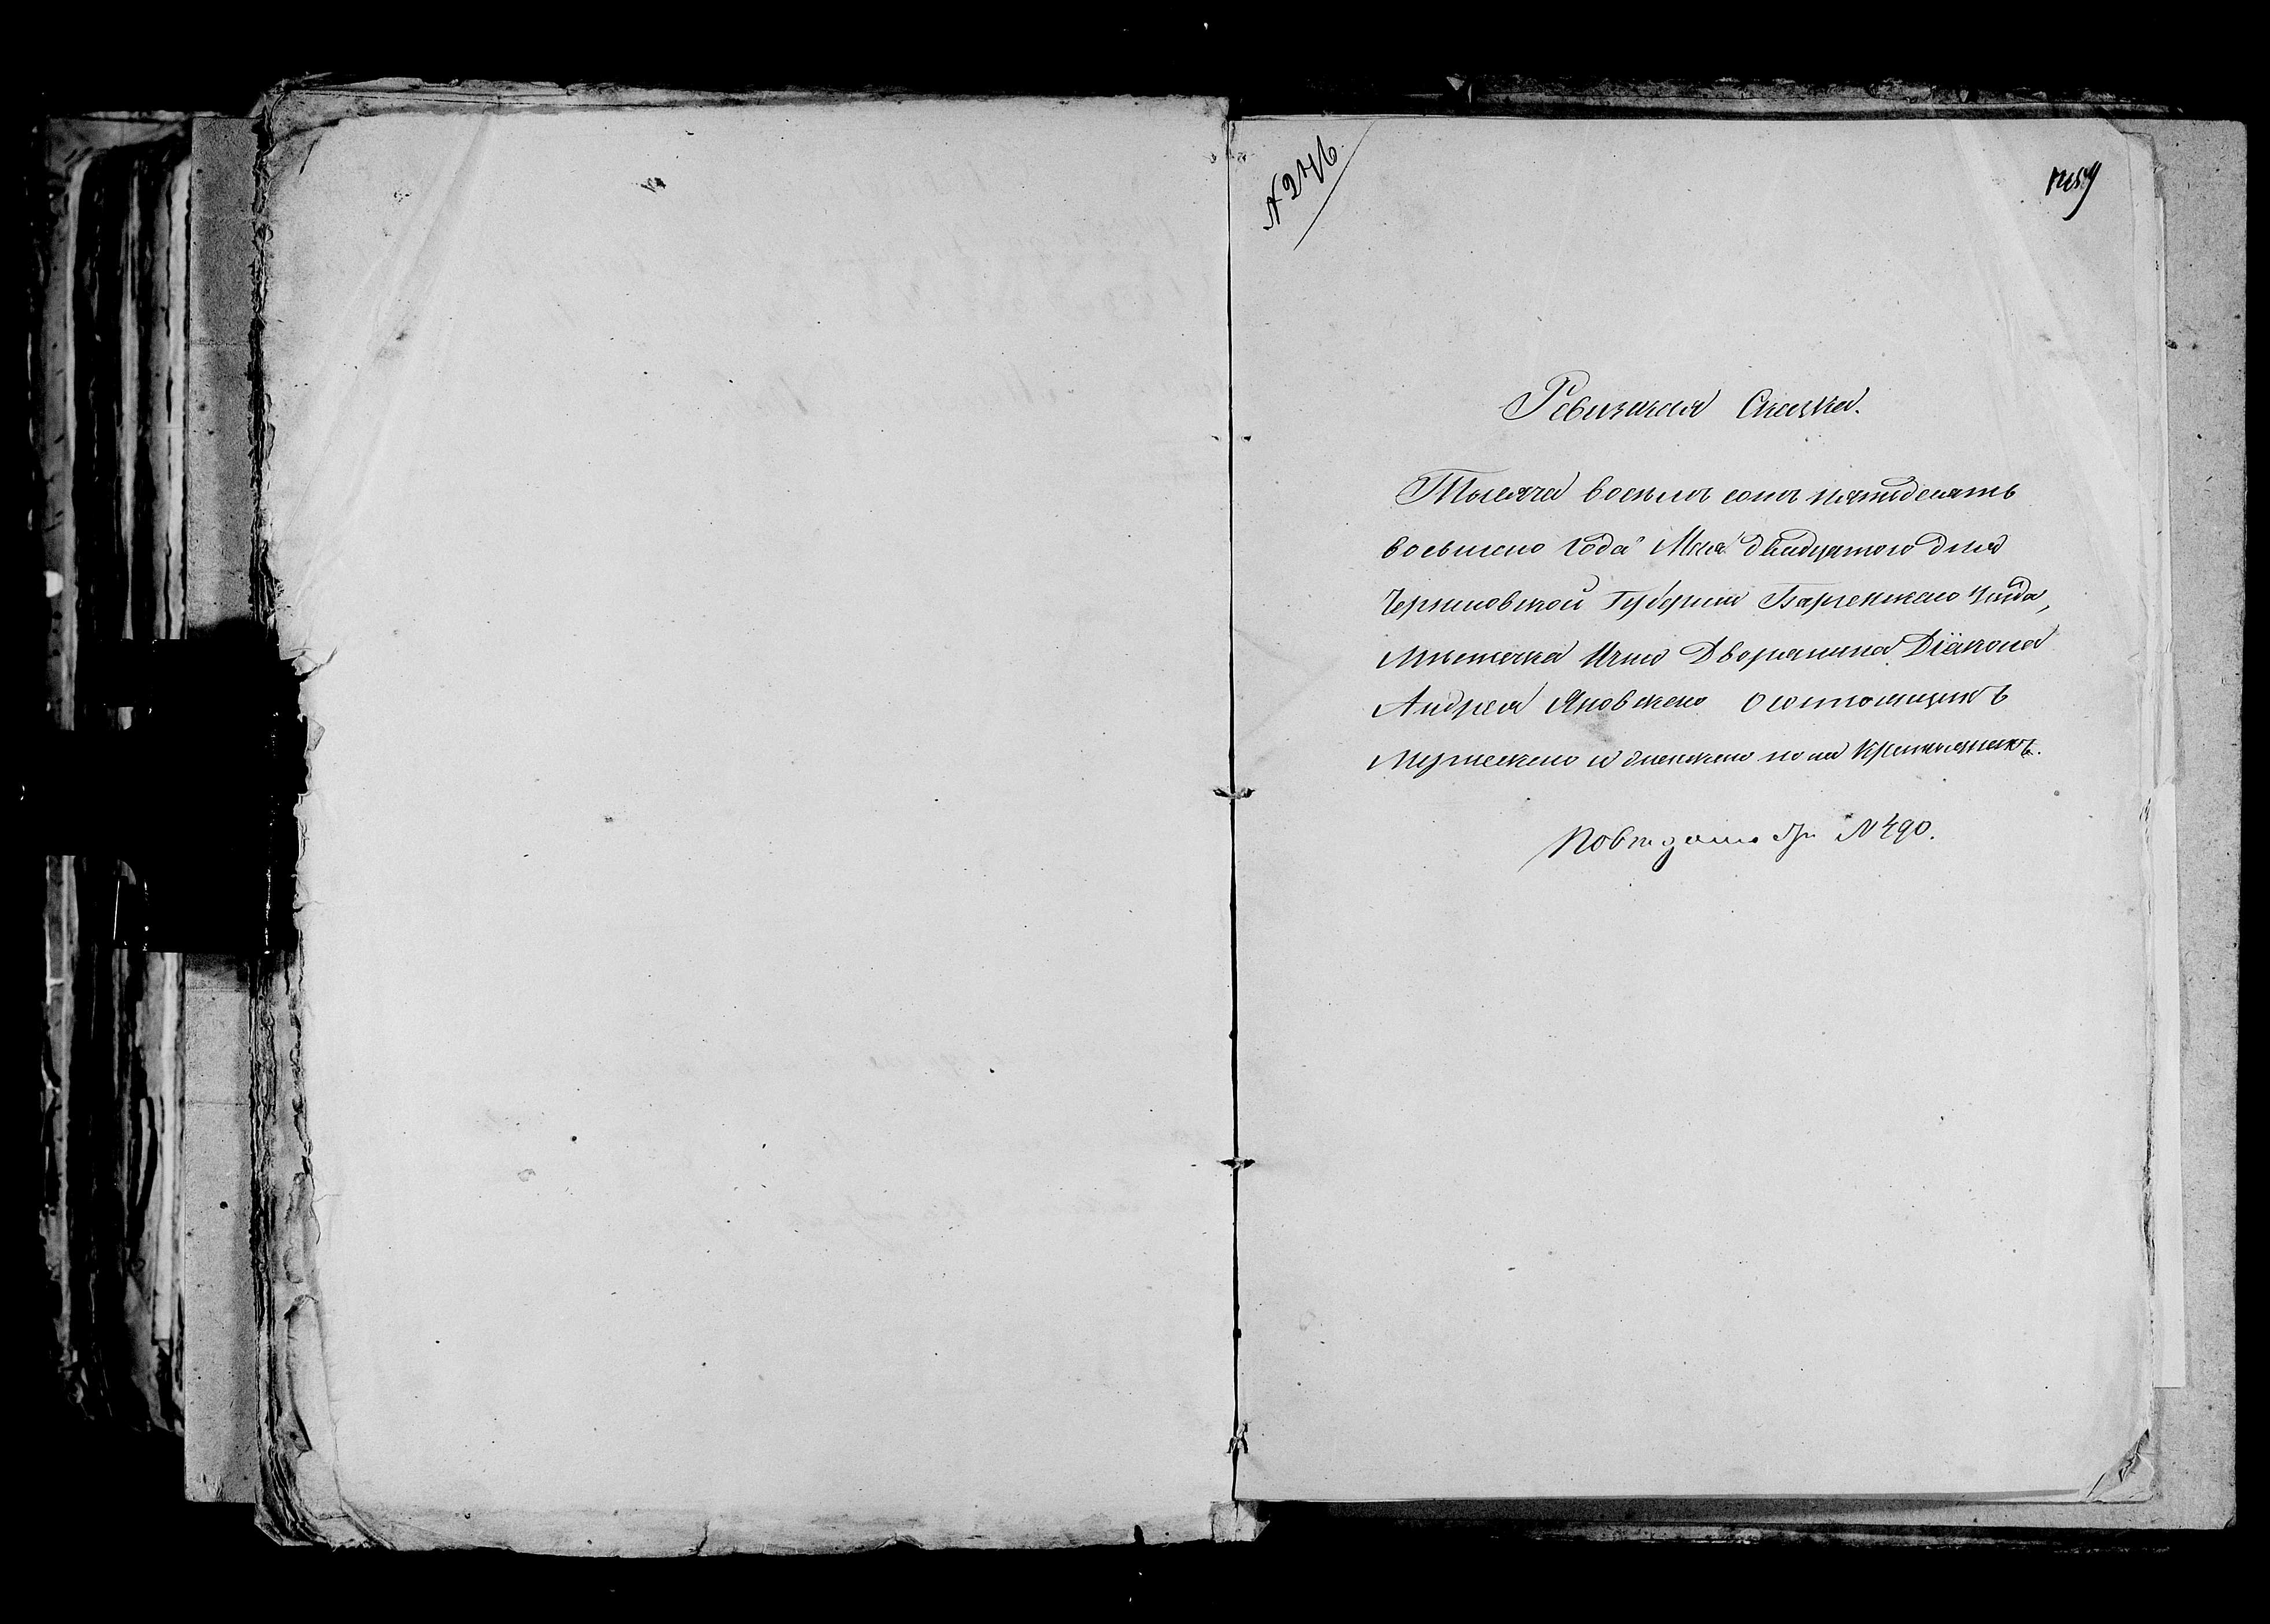 N 276
Ревизская Сказка.
Тысяча восемь сотъ пятидесятъ
восьмого Года Мая двадцатого дня
Черниговской Губернии Борзенскаго Уезда,
Местечка Ични Дворянина Діакона
Андрея Яновскаго О состоящихъ
Мужескаго и женскаго пола Крестьянахъ.
N 490.